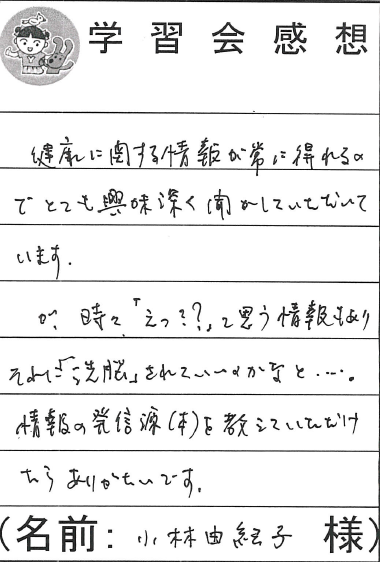 学習会感想
健康に関する情報が常に得れるの
でとても興味深く聞かしていただいて
います。
が、時々「えっ??」と思う情報もあり
それに「洗脳」されていいのかなと……。
情報の発信源(本)を教えていただけ
たらありがたいです。
(名前:小林由絵子 様)